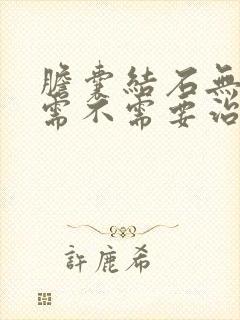 膽囊結石無
需不需要治
許鹿希